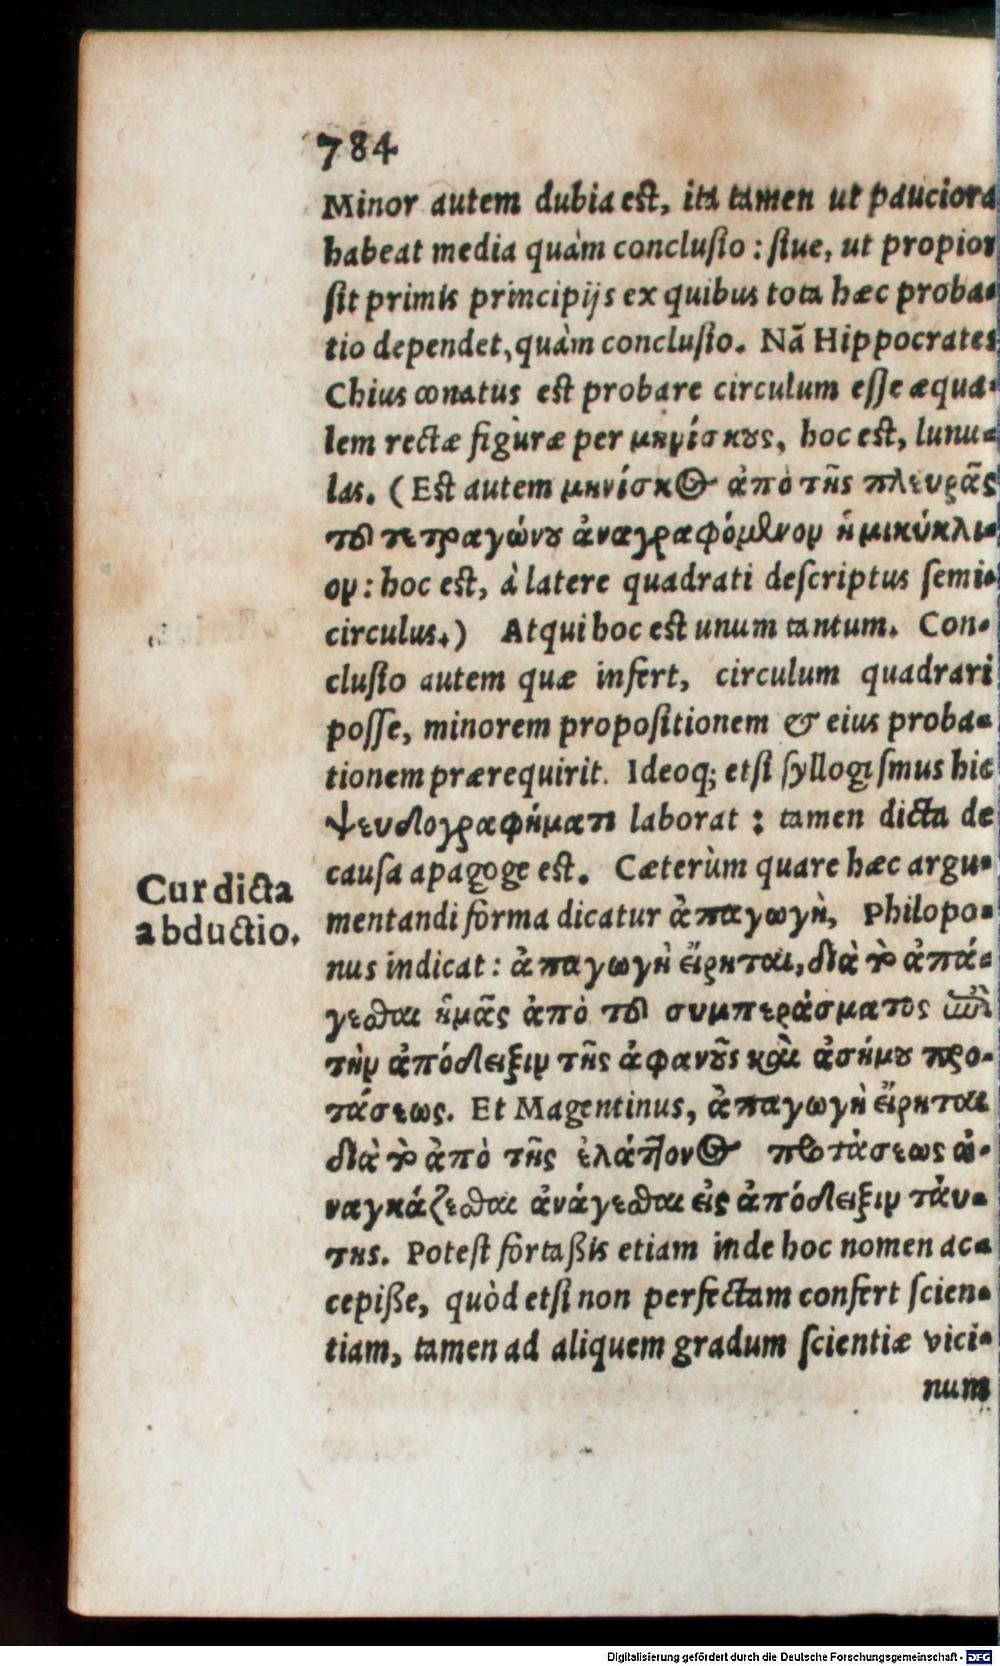 784
Minor autem dubia est, ita tamen ut pauciora
habeat media quàm conclusio : siue, ut propior
sit primis principijs ex quibus tota hæc proba-
tio dependet, quàm conclusio. Nã Hippocrates
Chius conatus est probare circulum esse æqua-
lem rectæ figuræ per μηνίσκους, hoc est, lunu-
las. (Est autem μηνίσκος ἀπὸ τῆς πλευρᾶς
τοῦ τετραγώνου ἀναγραφόμενον ἡμικύκλι-
ον : hoc est, à latere quadrati descriptus semi-
circulus.) Atqui hoc est unum tantum. Con-
clusio autem quæ infert, circulum quadrari
posse, minorem propositionem & eius proba-
tionem prærequirit. Ideoq; etsi syllogismus hic
ψευδογραφήματι laborat : tamen dicta de
causa apagoge est. Cæterùm quare hæc argu-
Cur dicta
abductio.
mentandi forma dicatur ἀπαγωγὴ, Philopo-
nus indicat : ἀπαγωγὴ εἴρηται, διὰ τὸ ἀπά-
γεσθαι ἡμᾶς ἀπὸ τοῦ συμπεράσματος ἐπὶ
τὴν ἀπόδειξιν τῆς ἀφανοῦς καὶ ἀσήμου προ-
τάσεως. Et Magentinus, ἀπαγωγὴ εἴρηται
διὰ τὸ ἀπὸ τῆς ἐλάττονος προτάσεως ἀ-
ναγκάζεσθαι ἀνάγεσθαι εἰς ἀπόδειξιν ταύ-
της. Potest fortaßis etiam inde hoc nomen ac-
cepiße, quòd etsi non perfectam confert scien-
tiam, tamen ad aliquem gradum scientiæ vici-
num
Digitalisierung gefördert durch die Deutsche Forschungsgemeinschaft - DFG